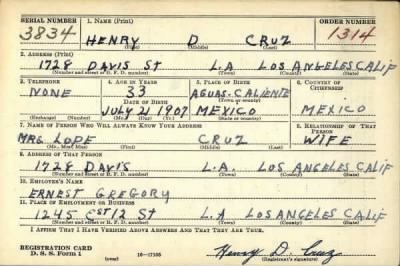 SERIAL NUMBER 1. NAME (Print) ORDER NUMBER
3834 HENRY D CRUZ 1314
(First) (Middle) (Last)
2. ADDRESS (Print)
1728 DAVIS St L.A LOS ANGELES CALIF
(Number and street or R. F. D. number) (Town) (County) (State)
3. TELEPHONE 4. AGE IN YEARS 5. PLACE OF BIRTH 6. COUNTRY OF CITIZENSHIP
NONE 33 AGUAS. CALIENTE
DATE OF BIRTH (Town or county)
JULY 21 1907 MEXICO MEXICO
(Exchange) (Number) (Mo.) (Day) (Yr.) (State or country)
7. NAME OF PERSON WHO WILL ALWAYS KNOW YOUR ADDRESS 8. RELATIONSHIP OF THAT PERSON
MRS LUPE CRUZ WIFE
(Mr., Mrs., Miss) (First) (Middle) (Last)
9. ADDRESS OF THAT PERSON
1728 DAVIS L.A. LOS ANGELES CALIF
(Number and street or R. F. D. number) (Town) (County) (State)
10. EMPLOYER'S NAME
ERNEST GREGORY
11. PLACE OF EMPLOYMENT OR BUSINESS
1245 EST 12 St L.A LOS ANGELES CALIF
(Number and street or R. F. D. number) (Town) (County) (State)
I AFFIRM THAT I HAVE VERIFIED ABOVE ANSWERS AND THAT THEY ARE TRUE.
REGISTRATION CARD
D. S. S. Form 1 (over) 16—17105 Henry D. Cruz
(Registrant's signature)